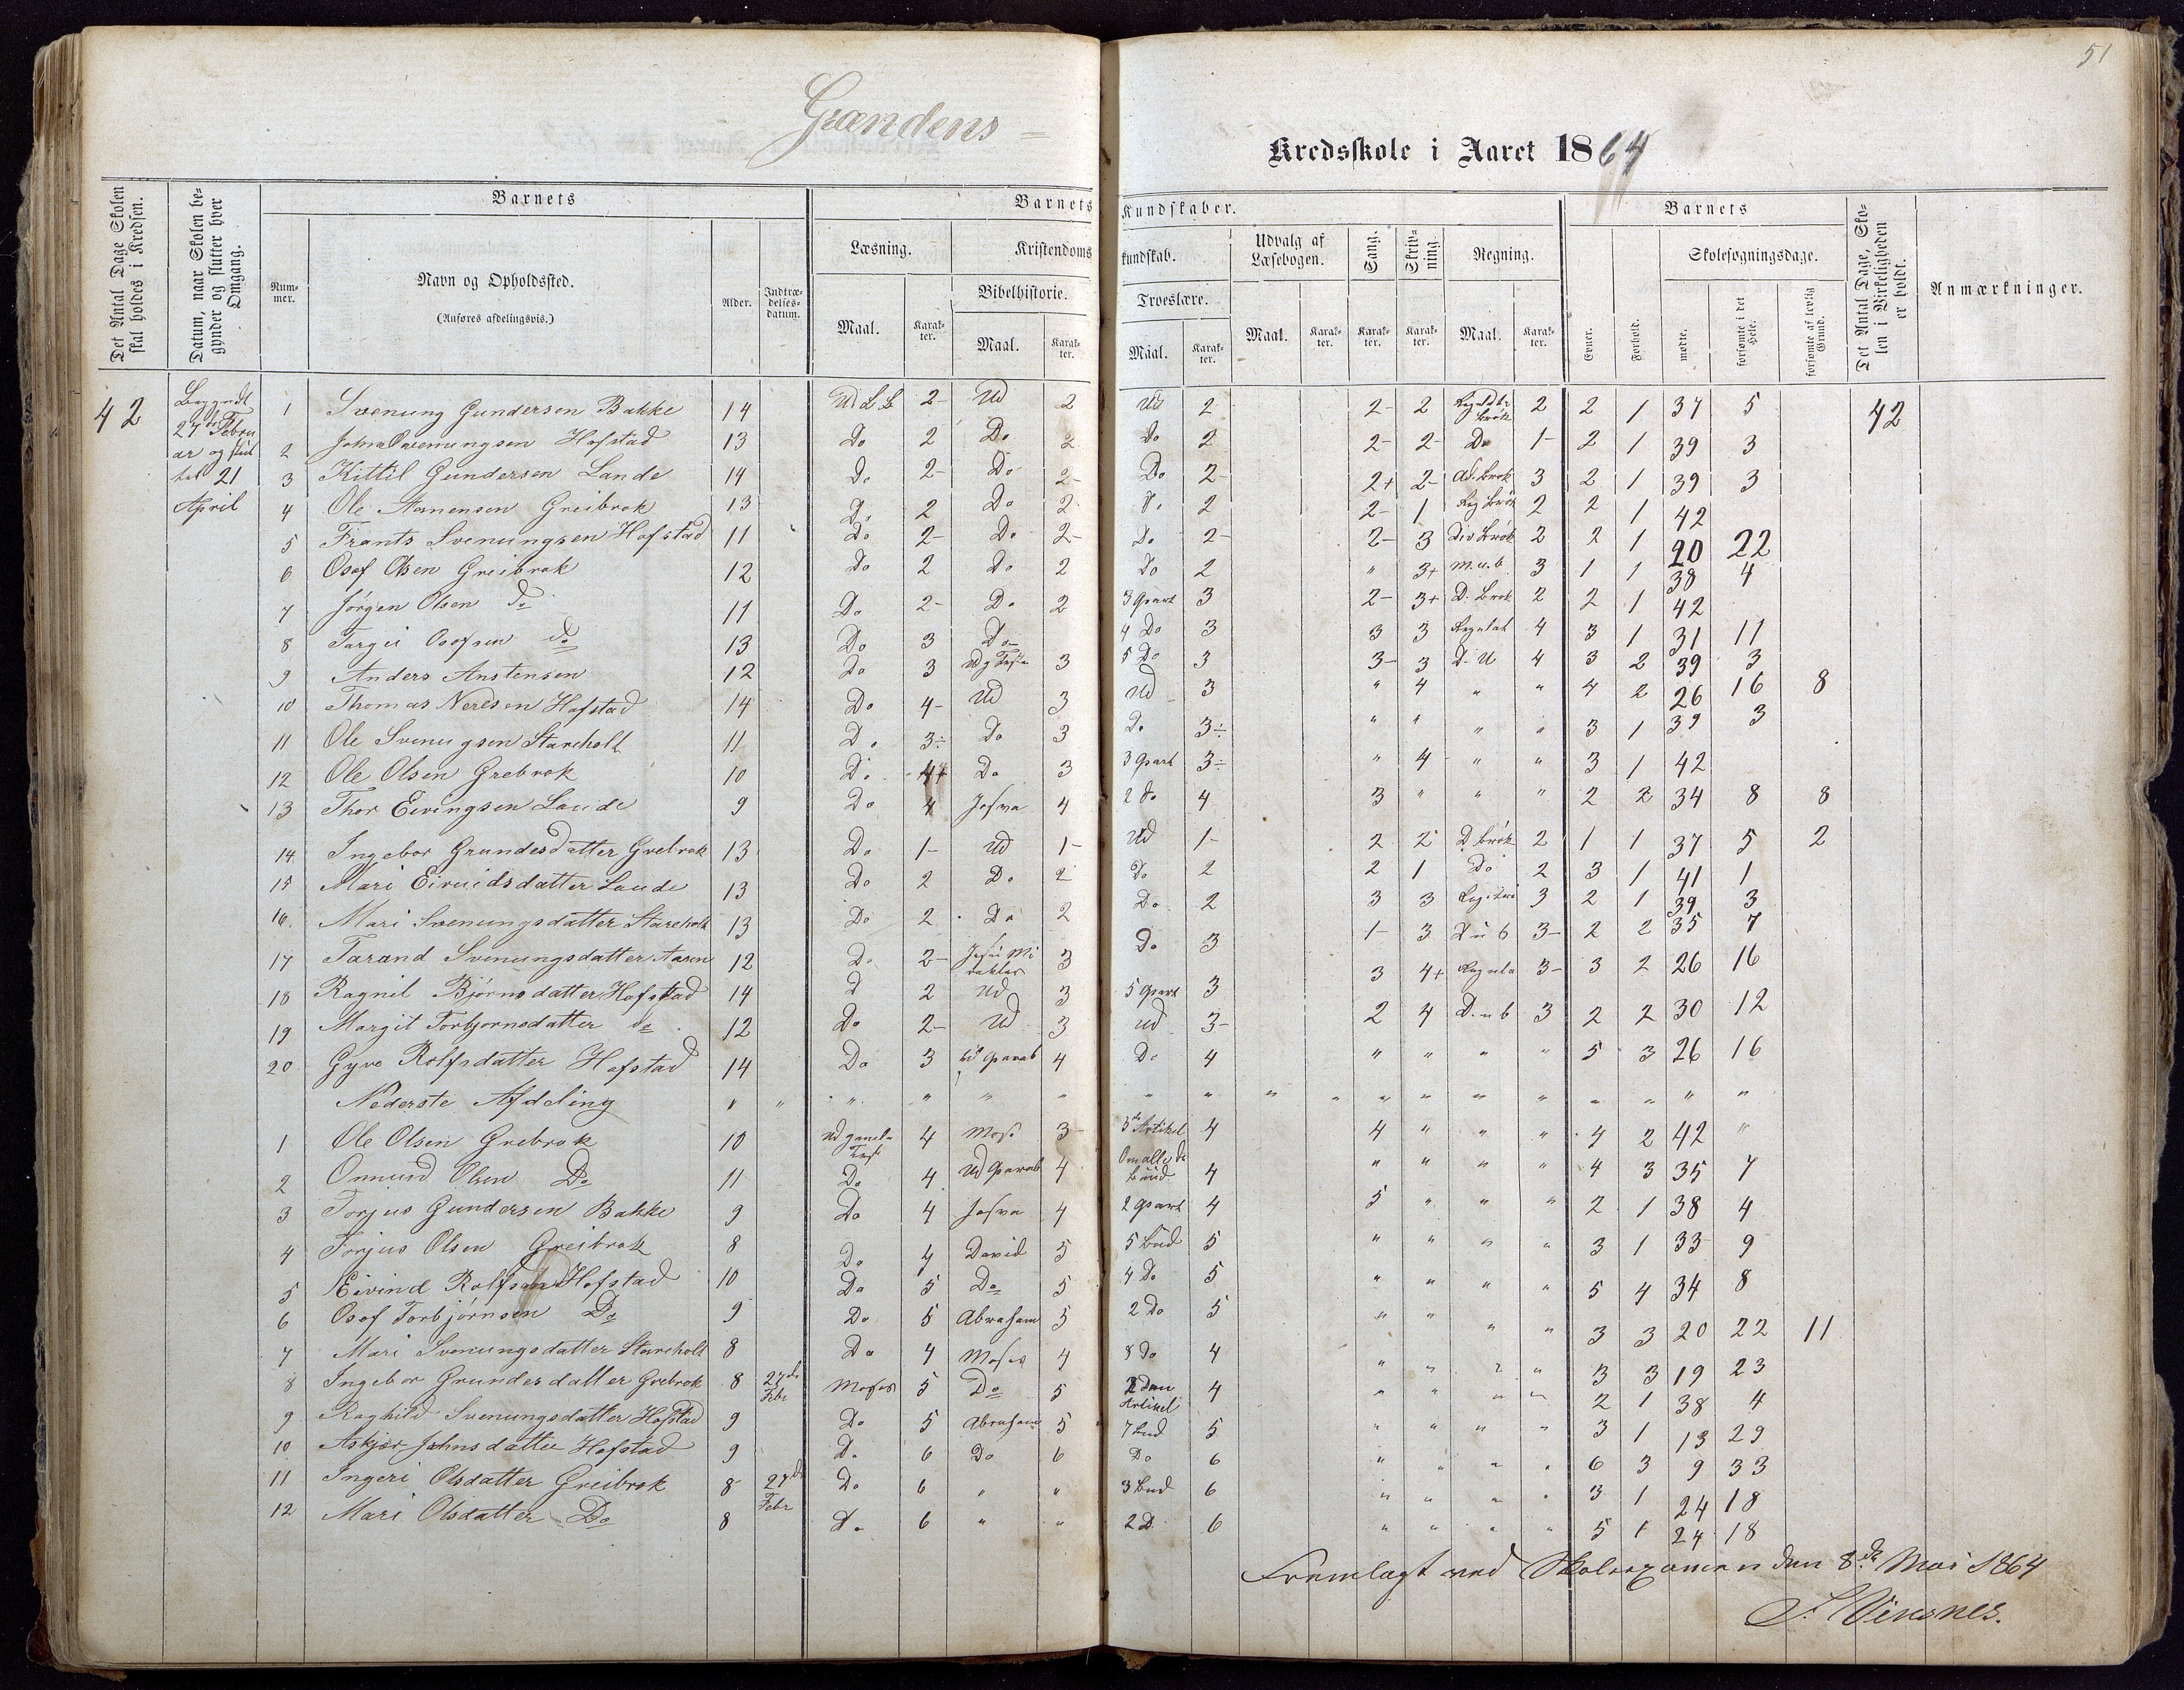 51
Grændens
Kredsskole i Aaret 1864
Det Antal Dage Skolen skal holdes i Kredsen.
Datum, naar Skolen begynder og slutter hver Omgang.
Barnets
Nummer.
Navn og Opholdssted.
(Anføres afdelingsvis.)
Alder.
Indtrædelsesdatum.
Barnets Kundskaber.
Læsning.
Maal.
Karakter.
Kristendomskundskab.
Bibelhistorie.
Maal.
Karakter.
Troeslære.
Maal.
Karakter.
Udvalg af Læsebogen.
Maal.
Karakter.
Sang.
Karakter.
Skrivning.
Karakter.
Regning.
Maal.
Karakter.
Barnets
Evner.
Forhold.
Skolesøgningsdage.
mødte.
forsømte i det Hele.
forsømte af lovlig Grund.
Det Antal Dage, Skolen i Virkeligheden er holdt.
Anmærkninger.
42 Begyndt 27de Februar og til 21 April
1 Svenung Gundersen Bakke 14 Ud LB 2- Ud 2 Ud 2 2- 2 2 2 1 37 5 42
2 John Svenungsen Hofstad 13 Do 2 Do 2 Do 2 2- 2- Do 1- 2 1 39 3
3 Kittil Gundersen Lande 14 Do 2- Do 2- Do 2- 2+ 2- Ad. Brøk 3 2 1 39 3
4 Ole Aanensen Greibrok 13 Do 2 Do 2 Do 2 2- 1 Reg Brøk 2 2 1 42
5 Frants Svenungsen Hofstad 11 Do 2- Do 2- Do 2- 2- 3 Div Brøk 2 2 1 20 22
6 Osof Olsen Greibrok 12 Do 2 Do 2 Do 2 " 3+ M.u.b. 3 1 1 38 4
7 Jørgen Olsen do 11 Do 2- Do 2 3 Part 3 2- 3+ D. Brøk 2 2 1 42
8 Targei Osofsen do 13 Do 3 Do 4 Do 3 3 3 4 3 1 31 11
9 Anders Anstensen 12 Do 3 3 5 Do 3 3- 3 D. U 4 3 2 39 3
10 Thomas Nerisen Hofstad 14 Do 4- Ud 3 Ud 3 " 4 " " 4 2 26 16 8
11 Ole Svenugsen Stareholt 11 Do 3÷ Do 3 Do 3÷ " " " " 3 1 39 3
12 Ole Olsen Grebrok 10 Do 4+ Do 3 3 Part 3÷ " 4 " " 3 1 42
13 Thor Eivingsen Lande 9 Do 4 Josva 4 2 do 4 3 " " " 2 2 34 8 8
14 Ingebor Grundesdatter Grebrok 13 Do 1- Ud 1- Ud 1- 2 2 D brøk 2 1 1 37 5 2
15 Mari Eivindsdatter Lande 13 Do 2 Do 2 Do 2 2 1 Do 2 3 1 41 1
16. Mari Svenungsdatter Stareholt 13 Do 2 Do 2 Do 2 3 3 3 2 1 39 3
17 Tarand Svenungsdatter Aaren 12 Do 2- Jesu Mirakler 3 Do 3 1- 3 D u b 3- 2 2 35 7
18 Ragnil Bjørnsdatter Hofstad 14 d 2 Ud 3 5 Part 3 3 4+ 3- 3 2 26 16
19 Margit Torbjornsdatter do 12 Do 2- Ud 3 Ud 3- 2 4 D. u b 3 2 2 30 12
20 Gyro Rolfsdatter Hofstad 14 Do 3 til Parab 4 Do 4 " " " " 5 3 26 16
Nederste Afdeling " " " " " " " " " " " " " " " " " "
1 Ole Olsen Grebrok 10 Ud gamle Test 4 Mose 3 3de Artikel 4 4 " " " 4 2 42 "
2 Onnund Olsen Do 11 Do 4 Ud Parab 4 Om alle de bud 4 " " " " 4 3 35 7
3 Torjus Gundersen Bakke 9 Do 4 Josva 4 2 Part 4 5 " " " 2 1 38 4
4 Torjus Olsen Greibrok 8 Do 4 David 5 5 Bud 5 " " " " 3 1 33 9
5 Eivind Rolfsen Hofstad 10 Do 5 Do 5 4 Do 5 " " " " 5 4 34 8
6 Osof Torbjørnsen Do 9 Do 5 Abraham 5 2 Do 5 " " " " 3 3 20 22 11
7 Mari Svenungsdatter Stareholt 8 Do 4 Moses 4 8 Do 4 " " " " 3 3 19 23
8 Ingebor Grundesdatter Grebrok 8 27de Febr Moses 5 Do 5 2den Artikel 4 " " " " 2 1 38 4
9 Raghild Svenungsdatter Hofstad 9 Do 5 Abraham 5 7 Bud 5 " " " " 3 1 13 29
10 Askjær Johnsdatter Hofstad 9 Do 6 Do 6 Do 6 " " " " 6 3 9 33
11 Ingeri Olsdatter Greibrok 8 27de Febr Do 6 " " 3 Bud 6 " " " " 3 1 24 18
12 Mari Olsdatter Do 8 Do 6 " " 2 D 6 " " " " 5 1 24 18
Fremlagt ved Skolexamen den 8de Mai 1864